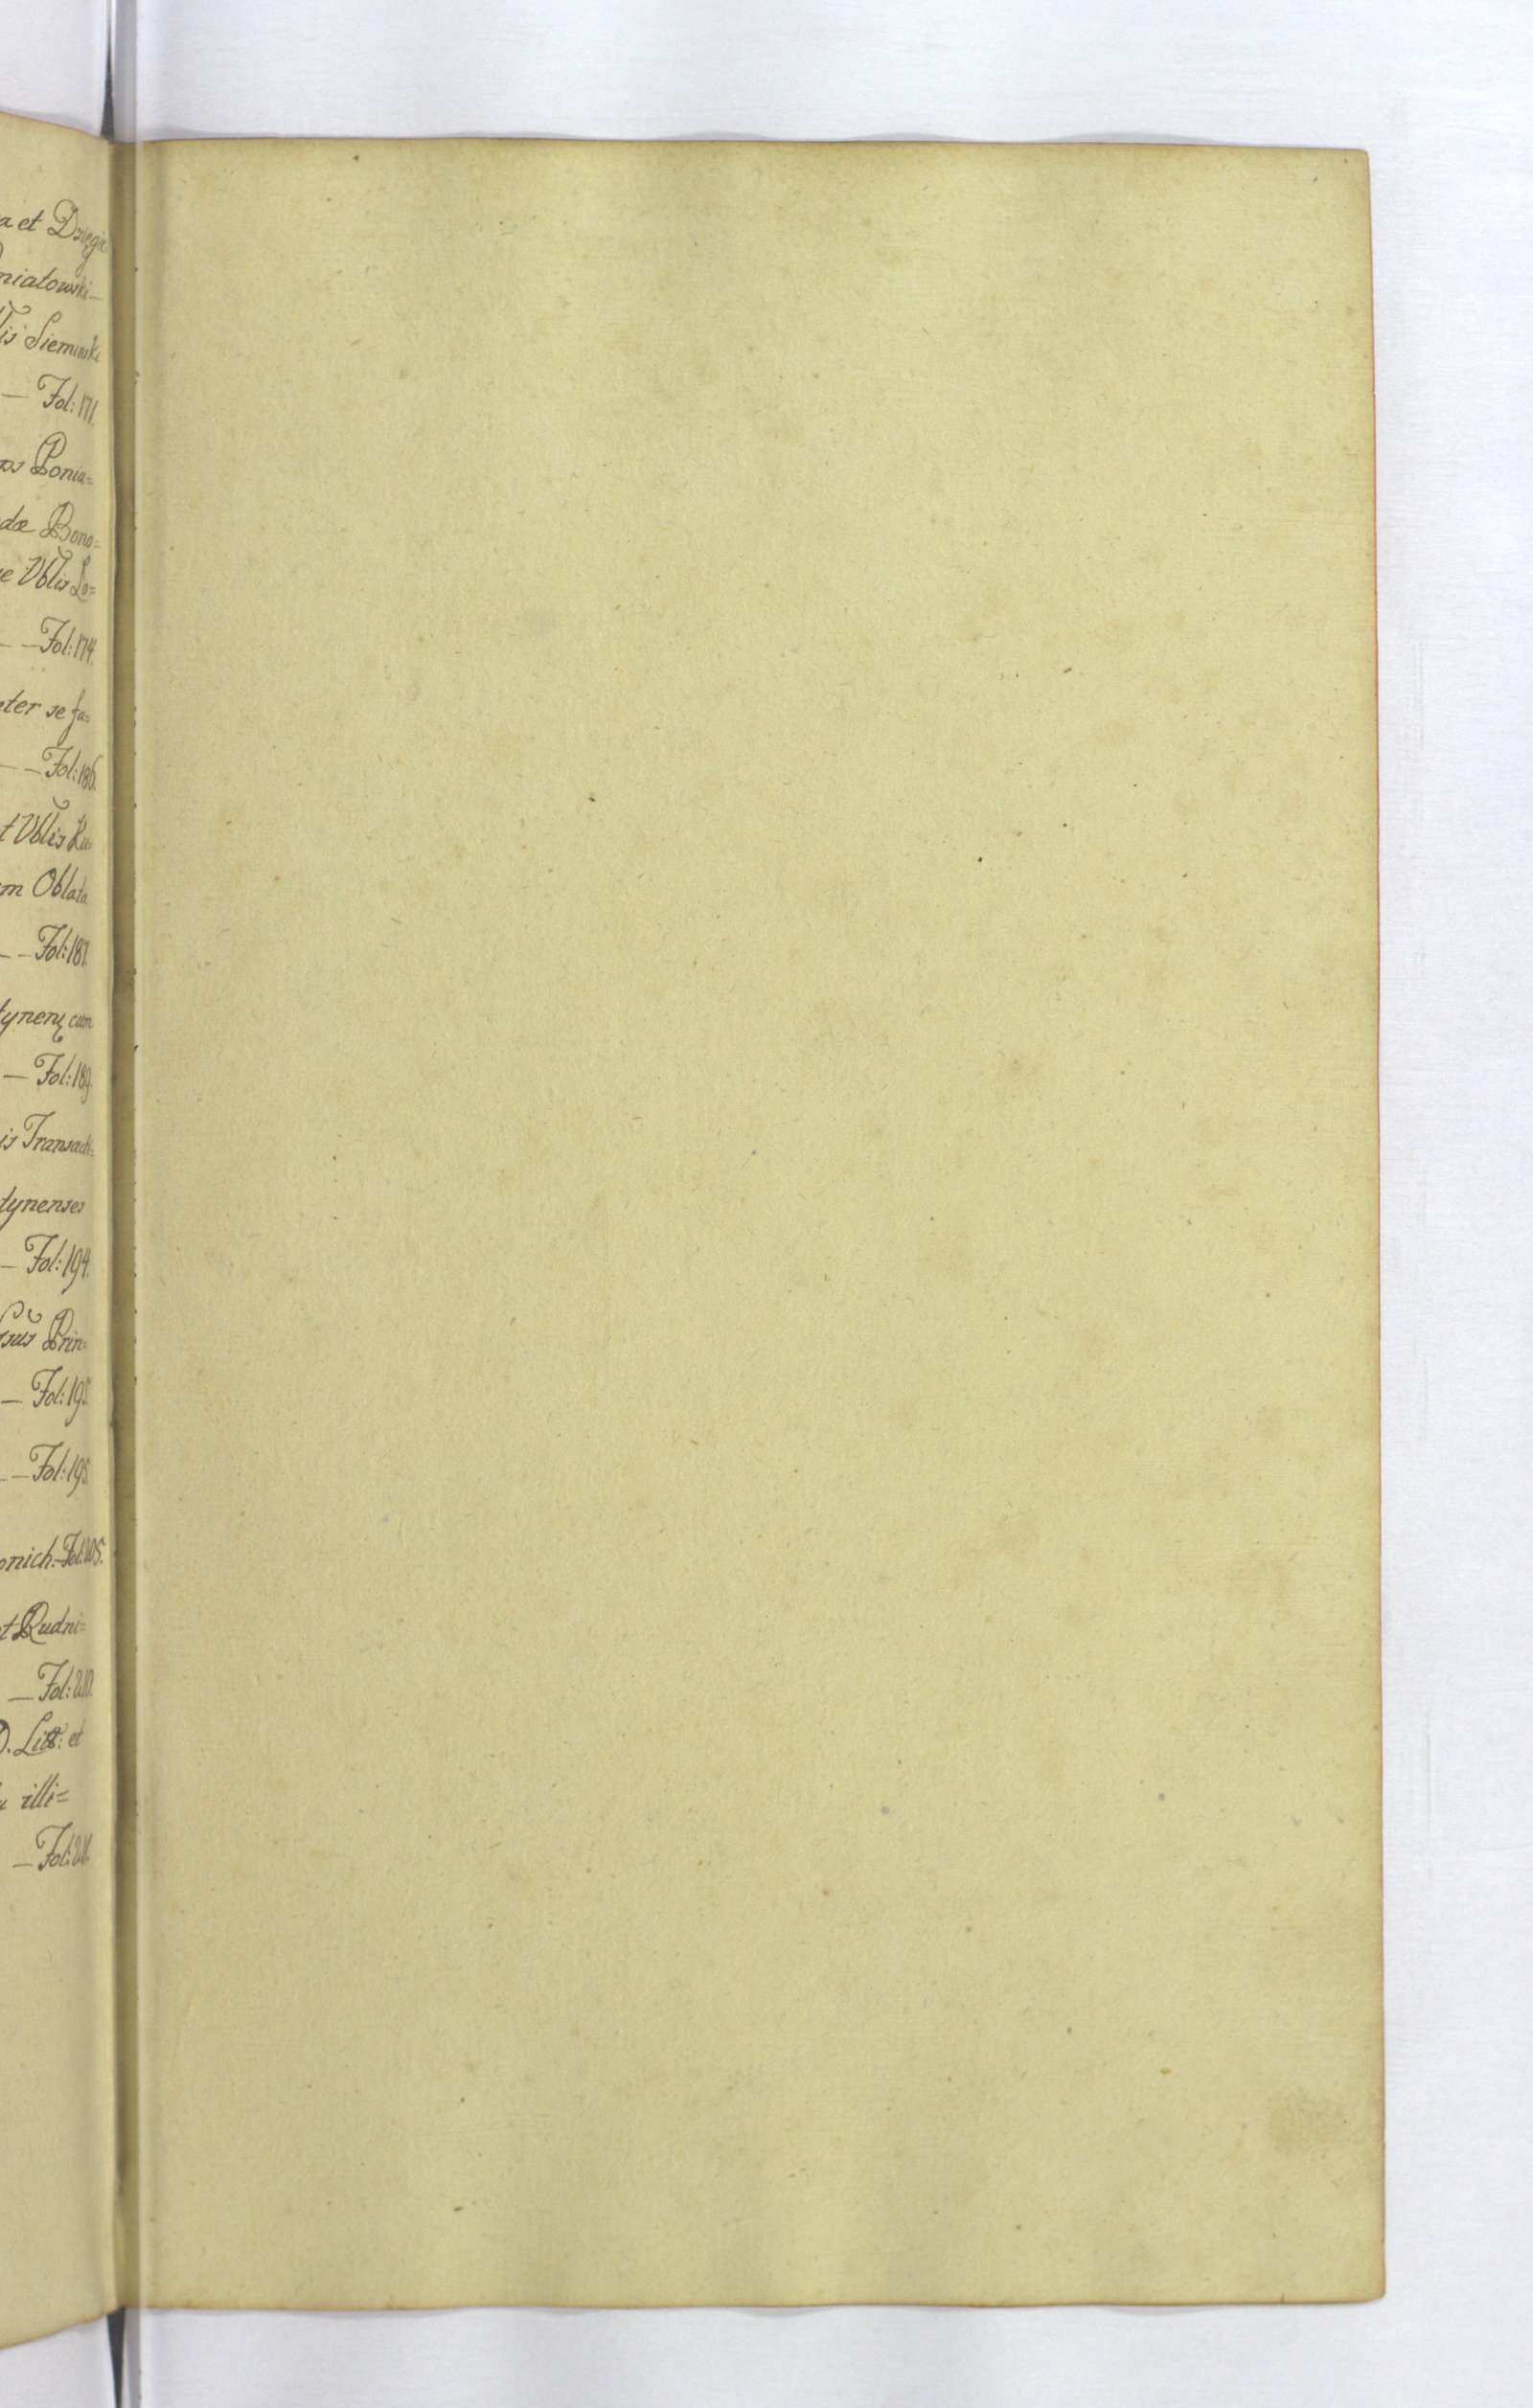 a et Dzięgie
niatowski –
lis Siemiński
– Fol: 171.
ps Ponia=
dæ Bono=
e Vblis Lo=
– – Fol: 174.
ter se fa=
– – Fol: 186.
t Vblis Ku=
m Oblata
– – Fol: 187.
tynenę cum
– Fol: 189.
is Transact=
tynenses
– Fol: 194.
Prin=
– Fol: 195.
– – Fol: 195.
onich. – Fol: 205.
t Rudni=
– Fol: 210.
D. Litt: et
illi=
– Fol: